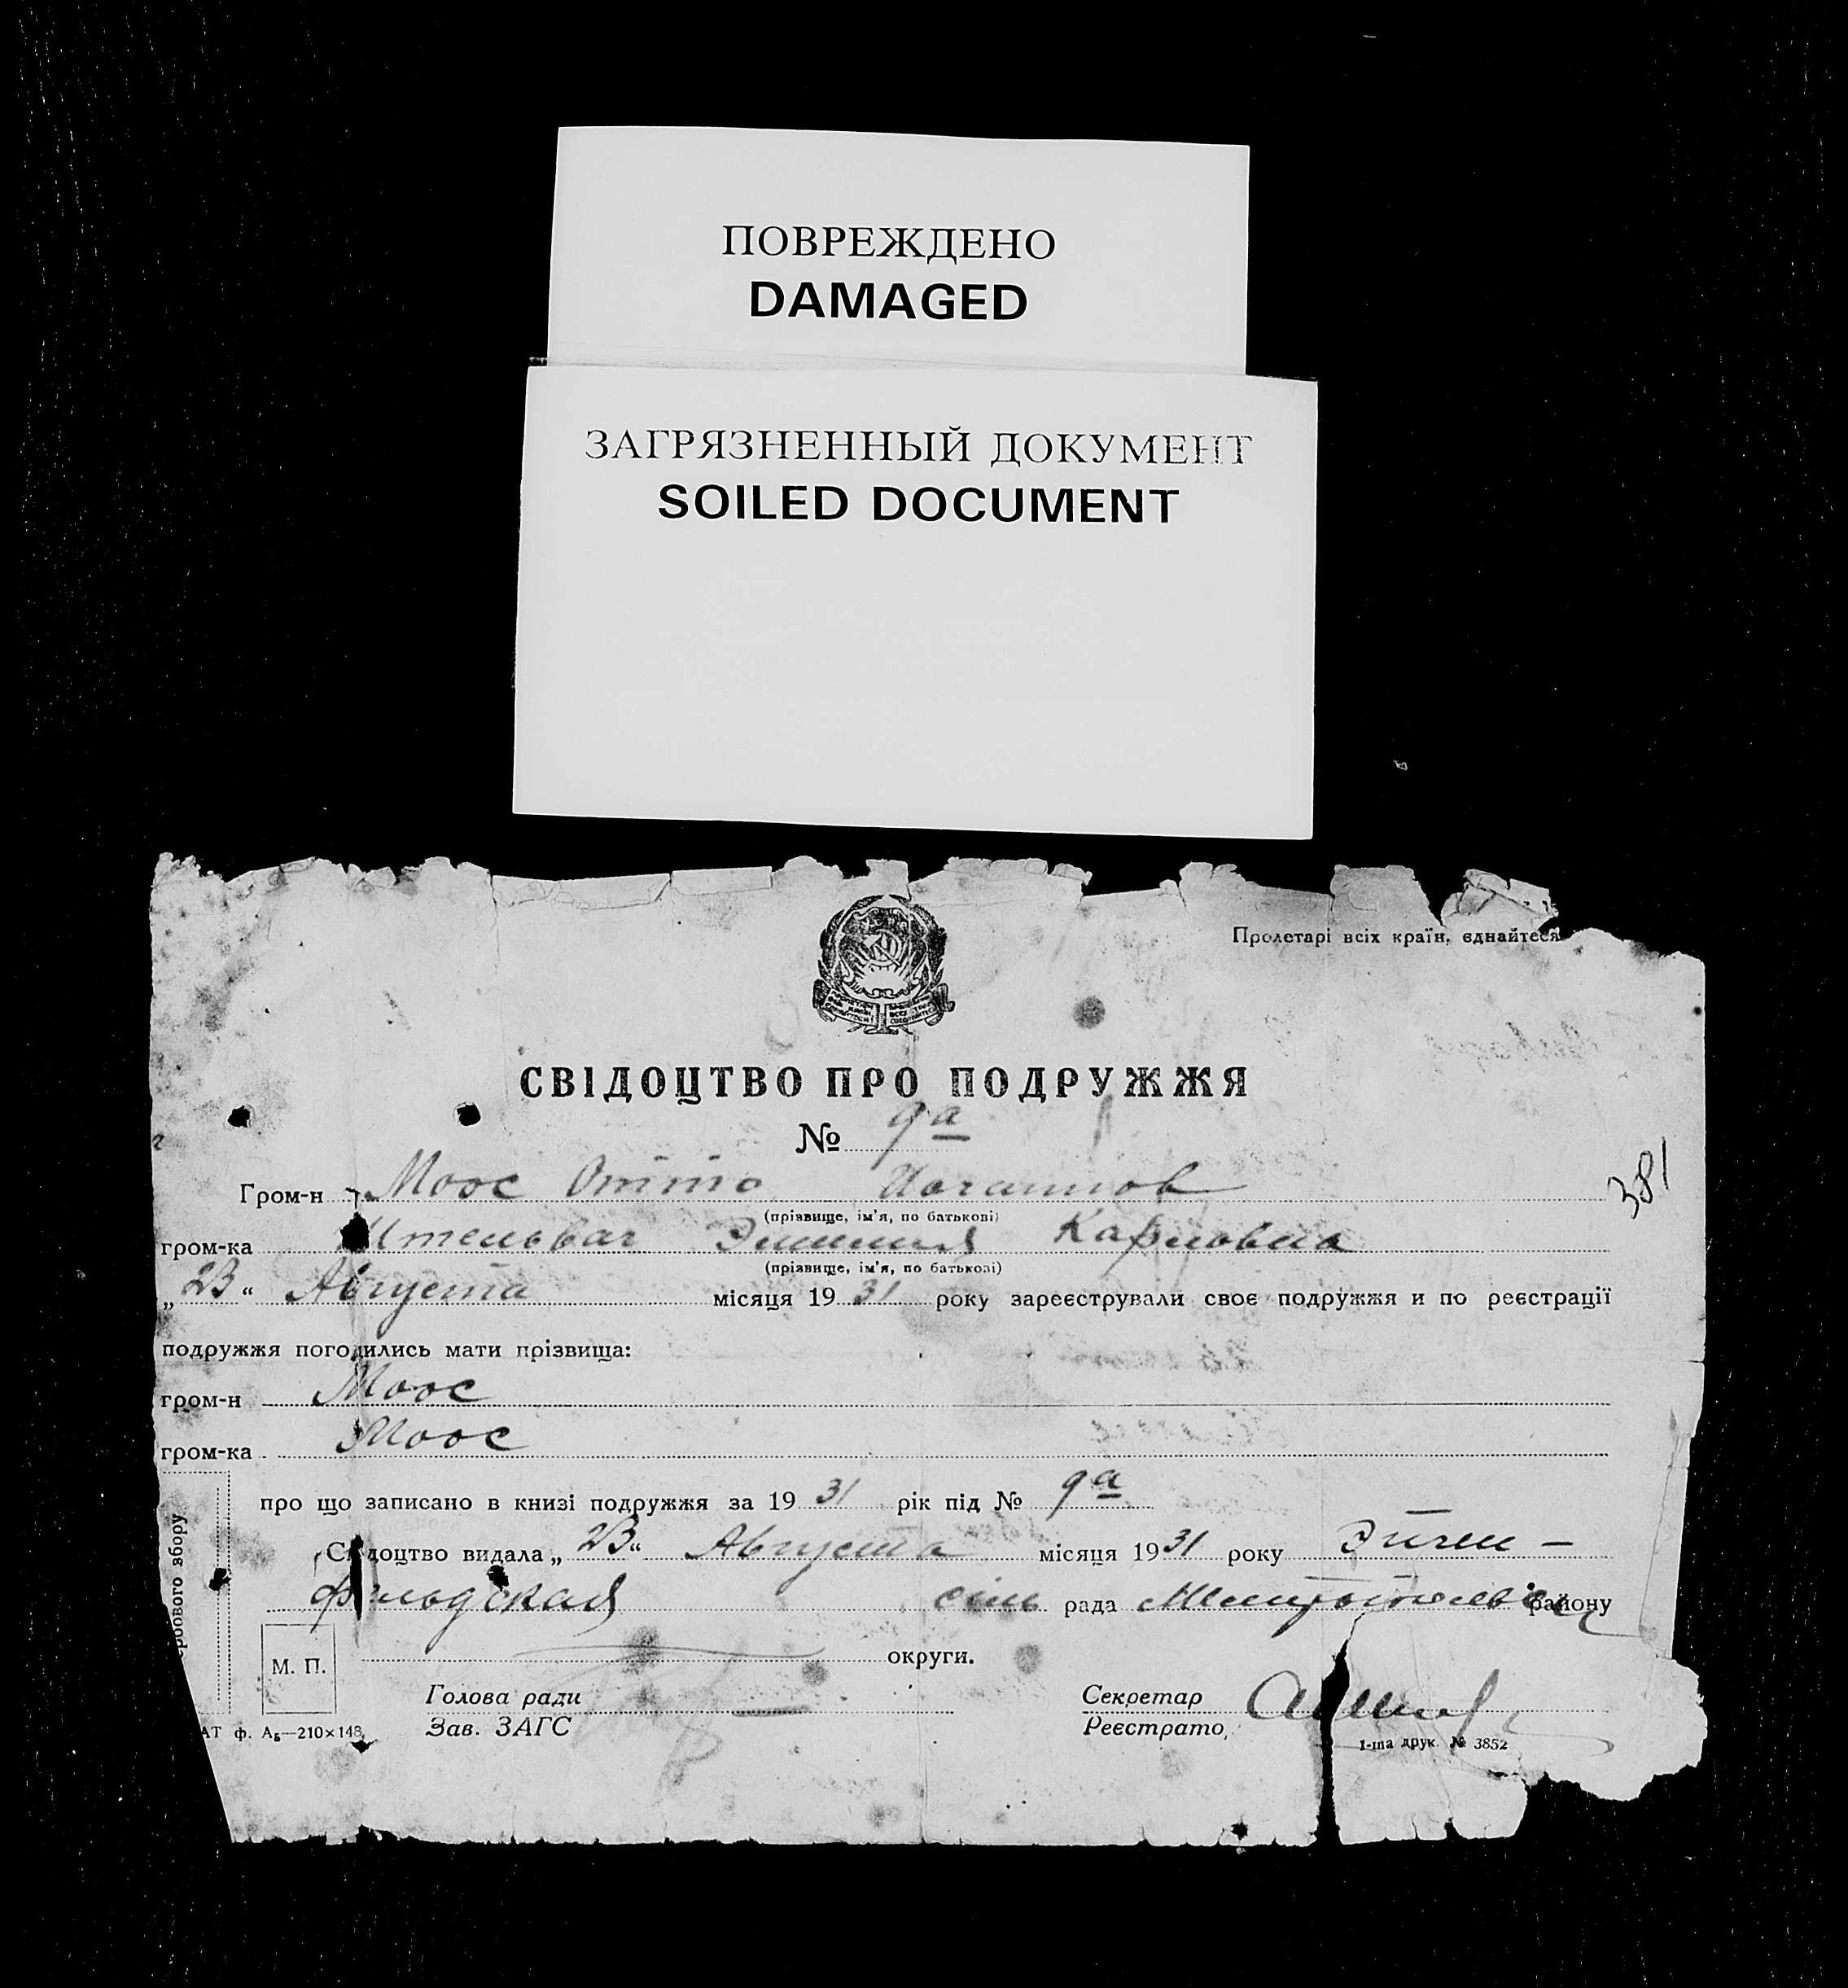 ПОВРЕЖДЕНО
DAMAGED
ЗАГРЯЗНЕННЫЙ ДОКУМЕНТ
SOILED DOCUMENT
Пролетарі всіх країн, єднайтеся
СВІДОЦТВО ПРО ПОДРУЖЖЯ
№ 9а
381
Гром-н Моос Отто
(прізвище, ім'я, по батькові)
гром-ка Карловна
(прізвище, ім'я, по батькові)
„23“ Августа місяця 1931 року зареєстрували своє подружжя и по реєстрації
подружжя погодились мати прізвища:
гром-н Моос
гром-ка Моос
про що записано в книзі подружжя за 1931 рік під № 9а
Свідоцтво видала „23“ Августа місяця 1931 року Эйген-
фельдская сіль рада району
округи.
М. П.
Голова ради Секретар
Зав. ЗАГС Реєстрато
АТ ф. А₅—210×148 1-ша друк. № 3852
рового збору